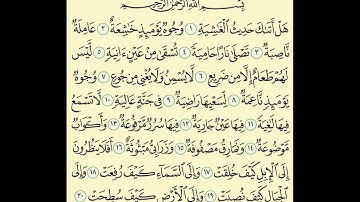 بِسْمِ اللَّهِ الرَّحْمَٰنِ الرَّحِيمِ
هَلْ أَتَىٰكَ حَدِيثُ ٱلْغَٰشِيَةِ ١ وُجُوهٌ يَوْمَئِذٍ خَٰشِعَةٌ ٢ عَامِلَةٌ
نَّاصِبَةٌ ٣ تَصْلَىٰ نَارًا حَامِيَةً ٤ تُسْقَىٰ مِنْ عَيْنٍ ءَانِيَةٍ ٥ لَّيْسَ
لَهُمْ طَعَامٌ إِلَّا مِن ضَرِيعٍ ٦ لَّا يُسْمِنُ وَلَا يُغْنِي مِن جُوعٍ ٧ وُجُوهٌ
يَوْمَئِذٍ نَّاعِمَةٌ ٨ لِّسَعْيِهَا رَاضِيَةٌ ٩ فِي جَنَّةٍ عَالِيَةٍ ١٠ لَّا تَسْمَعُ
فِيهَا لَٰغِيَةً ١١ فِيهَا عَيْنٌ جَارِيَةٌ ١٢ فِيهَا سُرُرٌ مَّرْفُوعَةٌ ١٣ وَأَكْوَابٌ
مَّوْضُوعَةٌ ١٤ وَنَمَارِقُ مَصْفُوفَةٌ ١٥ وَزَرَابِيُّ مَبْثُوثَةٌ ١٦ أَفَلَا يَنظُرُونَ
إِلَى ٱلْإِبِلِ كَيْفَ خُلِقَتْ ١٧ وَإِلَى ٱلسَّمَآءِ كَيْفَ رُفِعَتْ ١٨ وَإِلَى
ٱلْجِبَالِ كَيْفَ نُصِبَتْ ١٩ وَإِلَى ٱلْأَرْضِ كَيْفَ سُطِحَتْ ٢٠